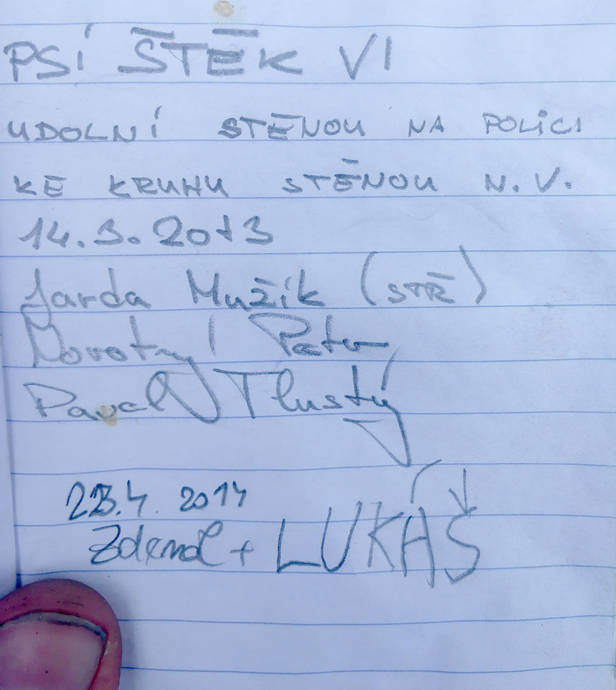 PSÍ ŠTĚK VI
UDOLNÍ STĚNOU NA POLICI
KE KRUHU STĚNOU N.V.
14.3.2013
Jarda Mužík (STŘ)
Novotný Petr
Pavel Tlustý
23.4. 2014
Zdeněk + LUKÁŠ